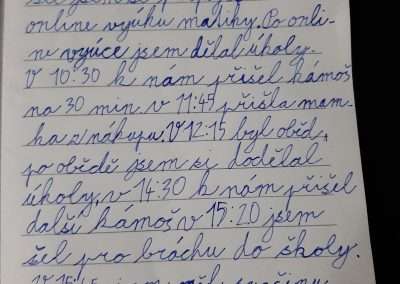 online výuku matiky. Po onli-
ne výuce jsem dělal úkoly.
V 10:30 k nám přišel kámoš
na 30 min. v 11:45 přišla mam-
ka z nákupu. V 12:15 byl oběd,
po obědě jsem si dodělal
úkoly, v 14:30 k nám přišel
další kámoš v 15:20 jsem
šel pro bráchu do školy.